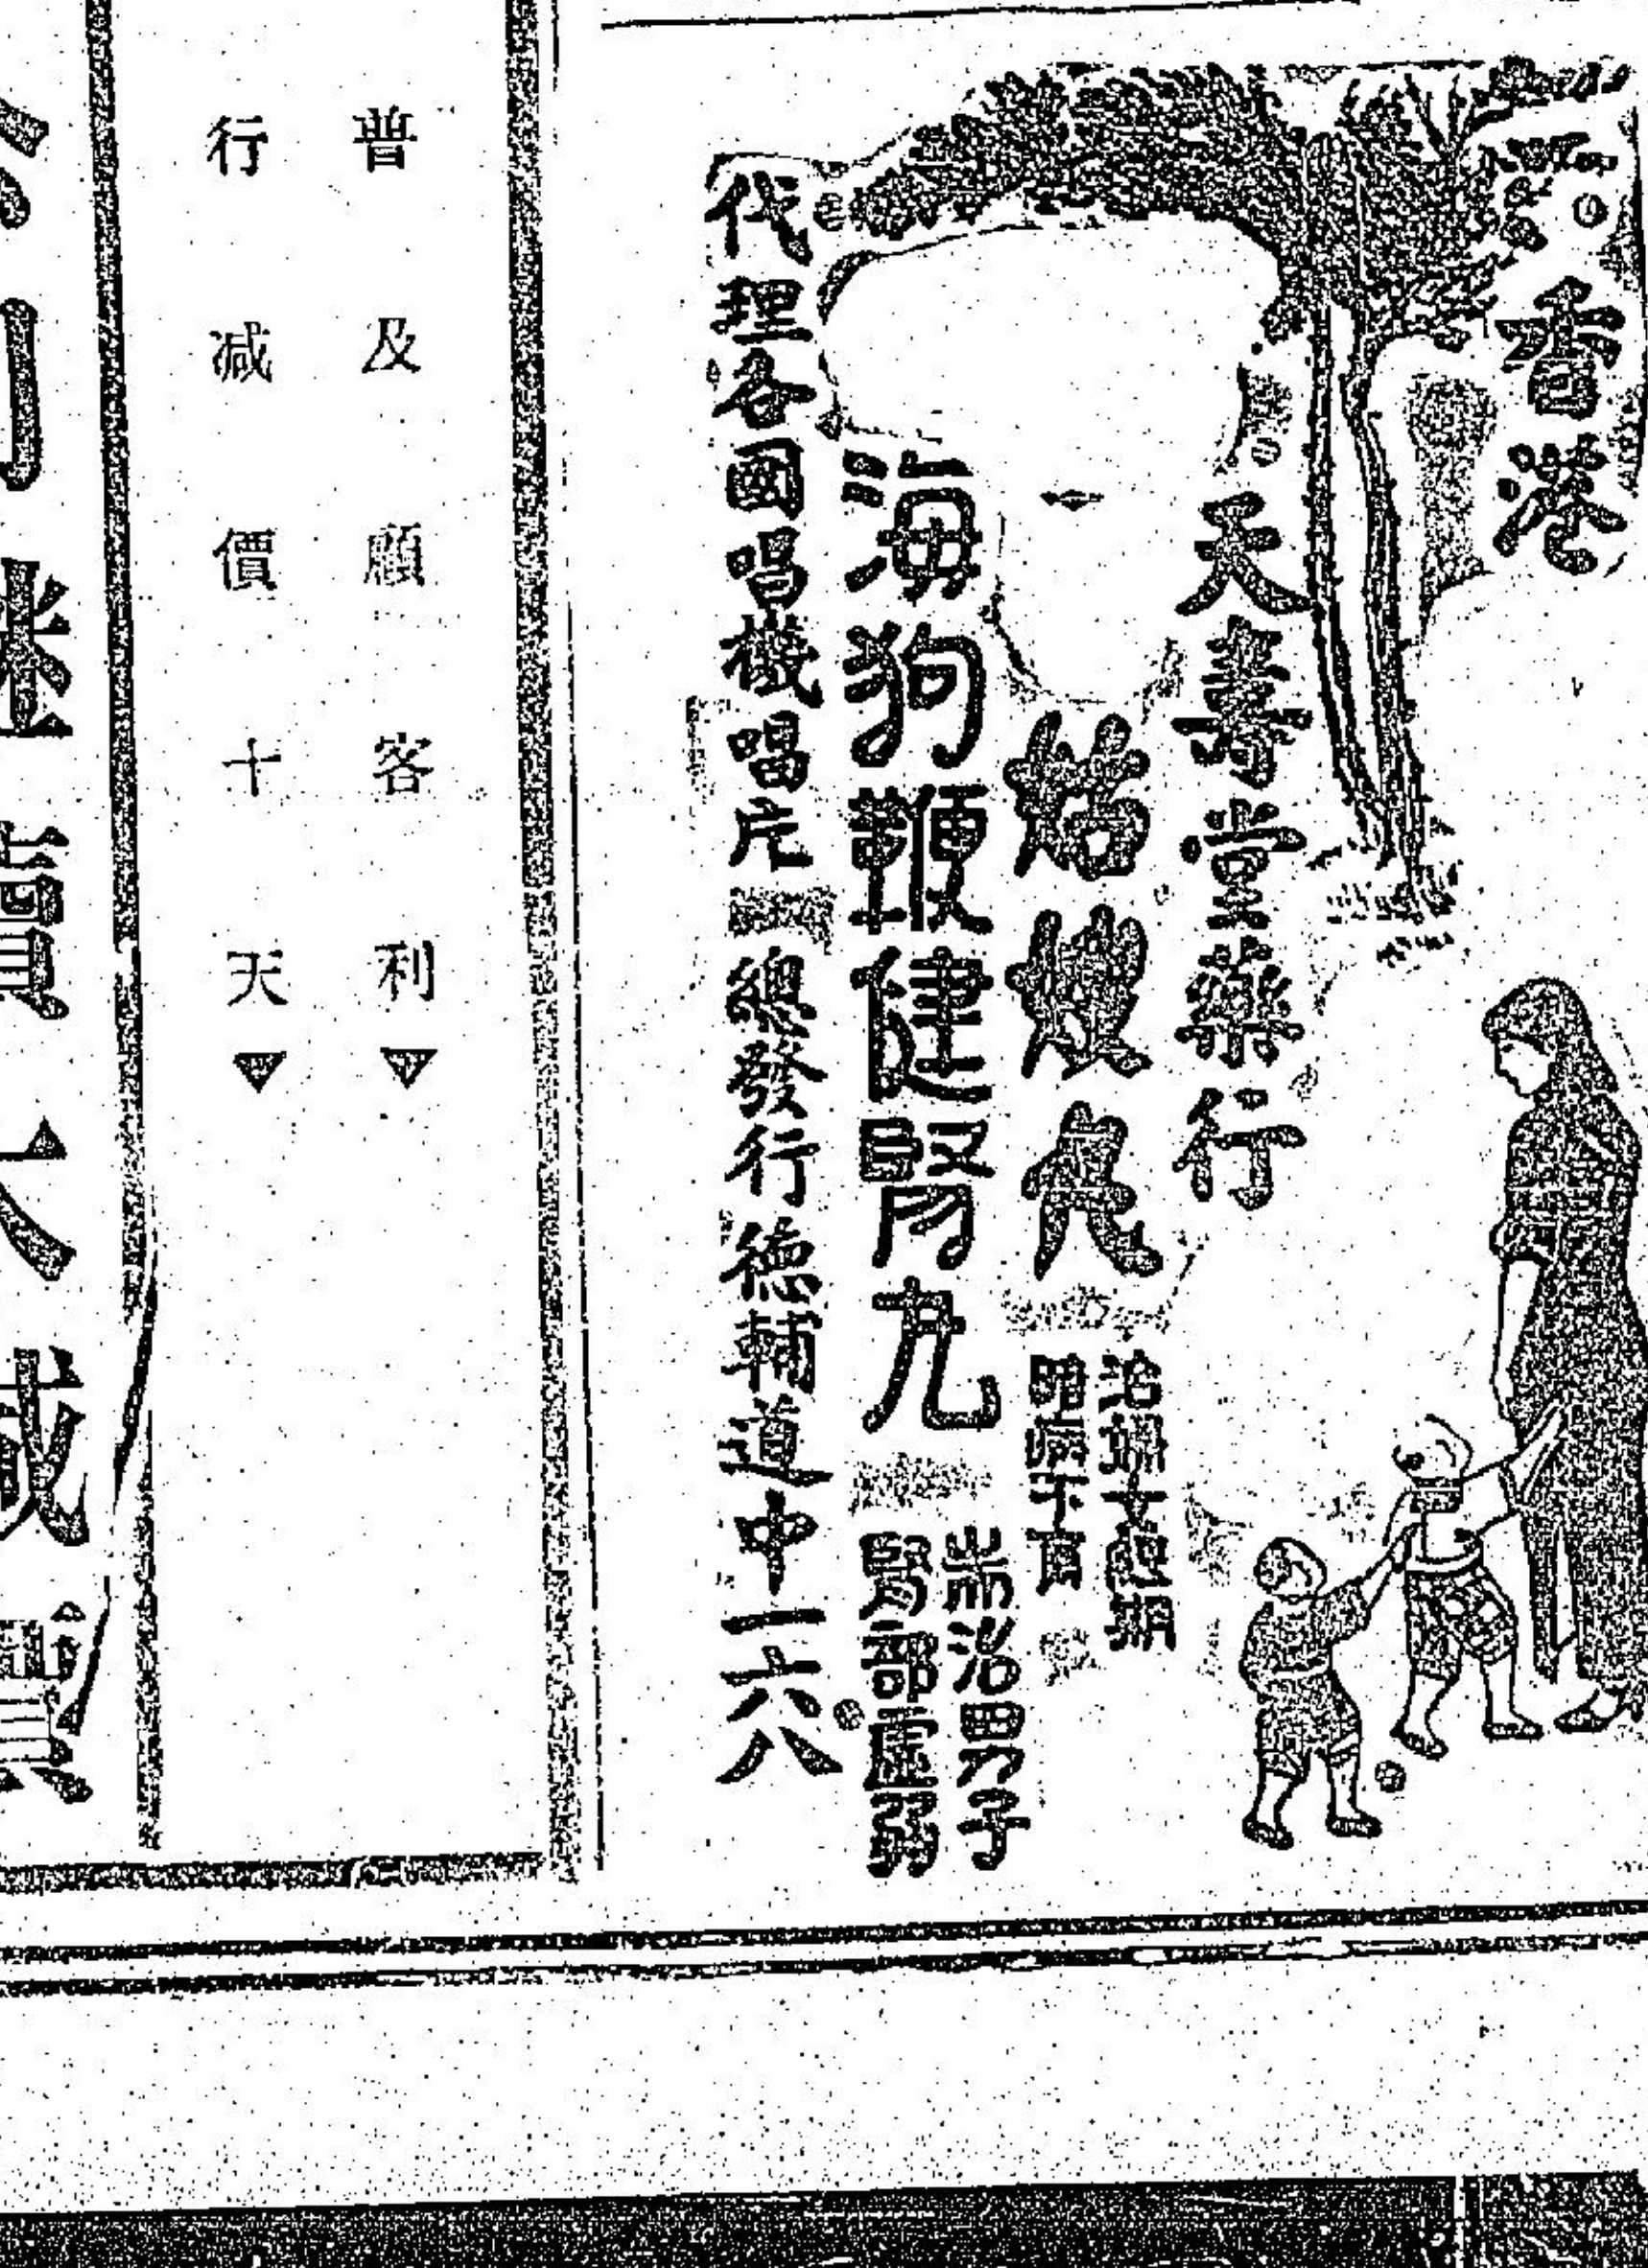 香港
天壽堂藥行
姑嫂丸
治婦女經期
暗病不育
海狗鞭健腎丸
耑治男子
腎部虛弱
代理各國唱機唱片
總發行德輔道中一六八
普及顧客利
行減價十天